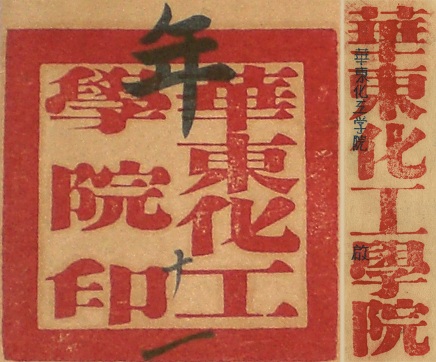 年
華東化工
學院印
十一
華東化工學院
華東化工学院
啟